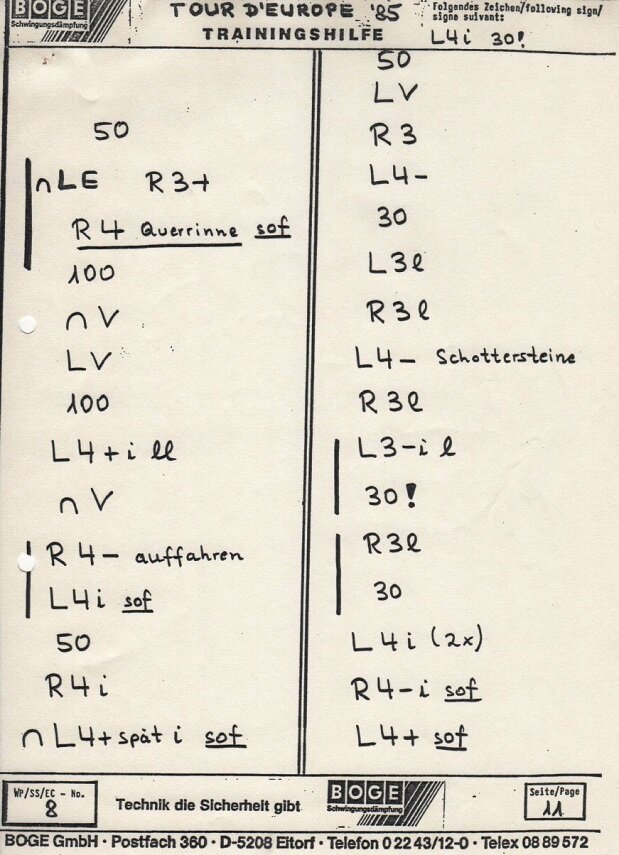 BOGE
Schwingungsdämpfung
TOUR D'EUROPE '85
TRAININGSHILFE
Folgendes Zeichen/following sign/
signe suivant:
L4i 30!
50
∩LE R3+
R4 Querrinne sof
100
∩ V
LV
100
L4+i ll
∩ V
R4- auffahren
L4i sof
50
R4i
∩L4+spät i sof
50
LV
R3
L4-
30
L3l
R3l
L4- Schottersteine
R3l
L3-i l
30!
R3l
30
L4i (2x)
R4-i sof
L4+ sof
WP/SS/EC - No.
8
Technik die Sicherheit gibt
BOGE
Schwingungsdämpfung
Seite/Page
11
BOGE GmbH · Postfach 360 · D-5208 Eitorf · Telefon 0 22 43/12-0 · Telex 08 89 572